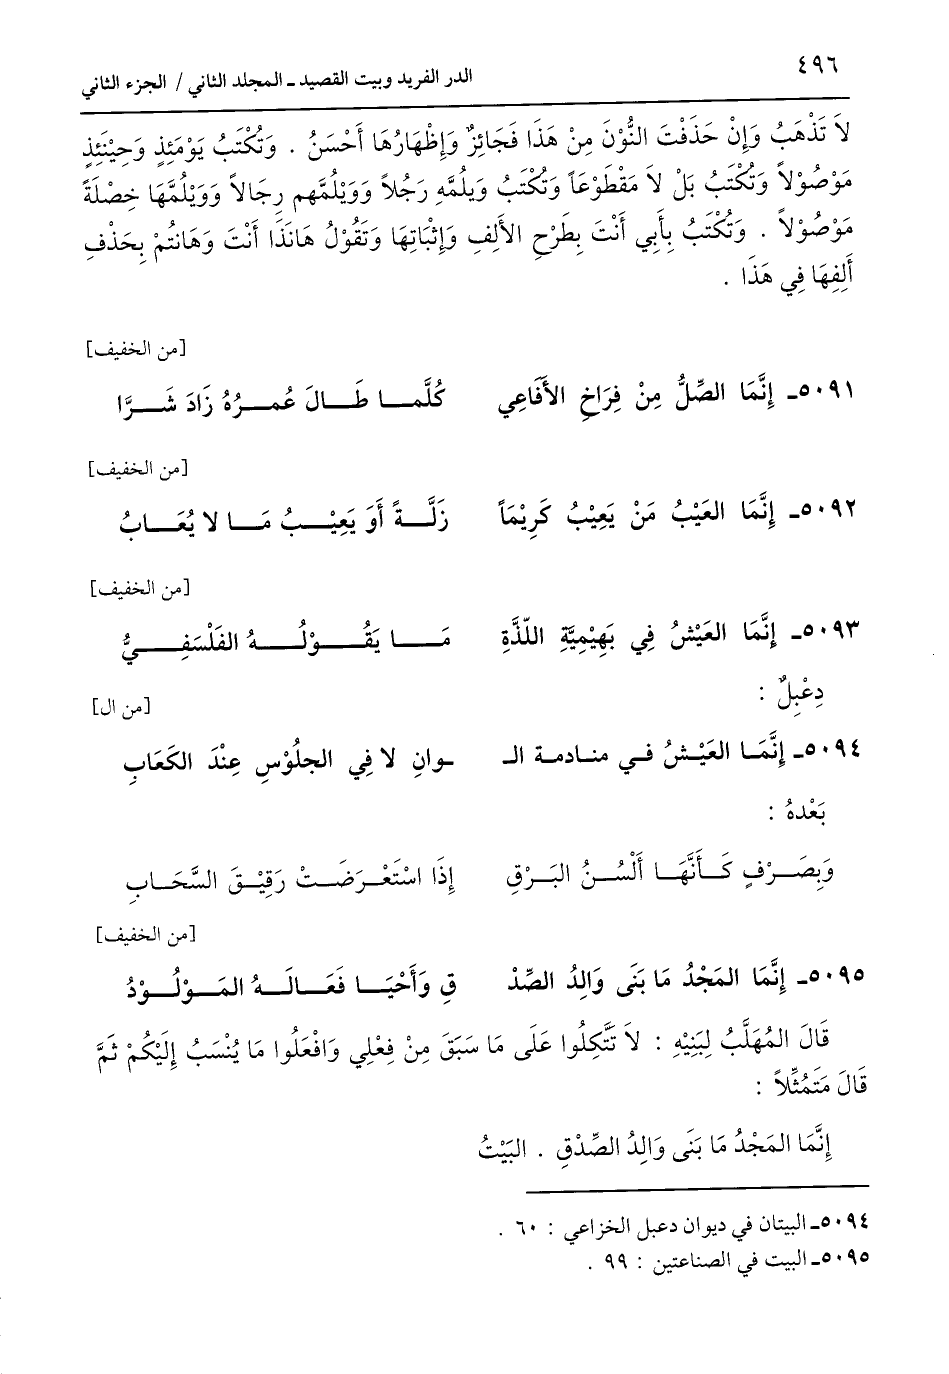 ٤٩٦
الدر الفريد وبيت القصيد ـ المجلد الثاني / الجزء الثاني
لاَ تَذْهَبُ وَإِنْ حَذَفْتَ النُّوْنَ مِنْ هَذَا فَجَائِزٌ وَإِظْهَارُهَا أَحْسَنُ . وَتُكْتَبُ يَوْمَئِذٍ وَحِيْنَئِذٍ
مَوْصُوْلاً وَتُكْتَبُ بَلْ لاَ مَقْطُوْعَاً وَتُكْتَبُ وَيلُمِّهِ رَجُلاً وَوَيْلُمِّهم رِجَالاً وَوَيْلُمِّهَا خِصْلَةً
مَوْصُوْلاً . وَتُكْتَبُ بِأَبِي أَنْتَ بِطَرْحِ الأَلِفِ وَإِثْبَاتِهَا وَتَقُوْلُ هَانَذَا أَنْتَ وَهَانتُمْ بِحَذْفِ
أَلِفِهَا فِي هَذَا .
[من الخفيف]
٥٠٩١ـ إِنَّمَا الصِّلُّ مِنْ فِرَاخِ الأَفَاعِي كُلَّمـا طَـالَ عُمـرُهُ زَادَ شَـرَّا
[من الخفيف]
٥٠٩٢ـ إِنَّمَا العَيْبُ مَنْ يَعِيْبُ كَرِيْمَاً زَلَّـةً أَوَ يَعِيْـبُ مَـا لا يُعَـابُ
[من الخفيف]
٥٠٩٣ـ إِنَّمَا العَيْشُ فِي بَهِيْمِيَّةِ اللّذَّةِ مَـا يَقُـوْلُـهُ الفَلْسَفِـيُّ
دِعْبِلٌ :
[من ال]
٥٠٩٤ـ إِنَّمَـا العَيْـشُ فـي منـادمة الـ ـوانِ لا فِي الجلُوْسِ عِنْدَ الكَعَابِ
بَعْدهُ :
وَبِصَـرْفٍ كَـأَنَّهَـا أَلْسُـنُ البَـرْقِ إِذَا اسْتَعْـرَضَـتْ رَقِيْـقَ السَّحَـابِ
[من الخفيف]
٥٠٩٥ـ إِنَّمَا المَجْدُ مَا بَنَى وَالِدُ الصِّدْ قِ وَأَحْيَـا فَعَـالَـهُ المَـوْلُـوْدُ
قَالَ المُهَلَّبُ لِبَنِيْهِ : لاَ تَتَّكِلُوا عَلَى مَا سَبَقَ مِنْ فِعْلِي وَافْعَلُوا مَا يُنْسَبُ إِلَيْكُمْ ثمَّ
قَالَ مَتَمَثِّلاً :
إِنَّمَا المَجْدُ مَا بَنَى وَالِدُ الصِّدْقِ . البَيْتُ
٥٠٩٤ـ البيتان في ديوان دعبل الخزاعي : ٦٠ .
٥٠٩٥ـ البيت في الصناعتين : ٩٩ .